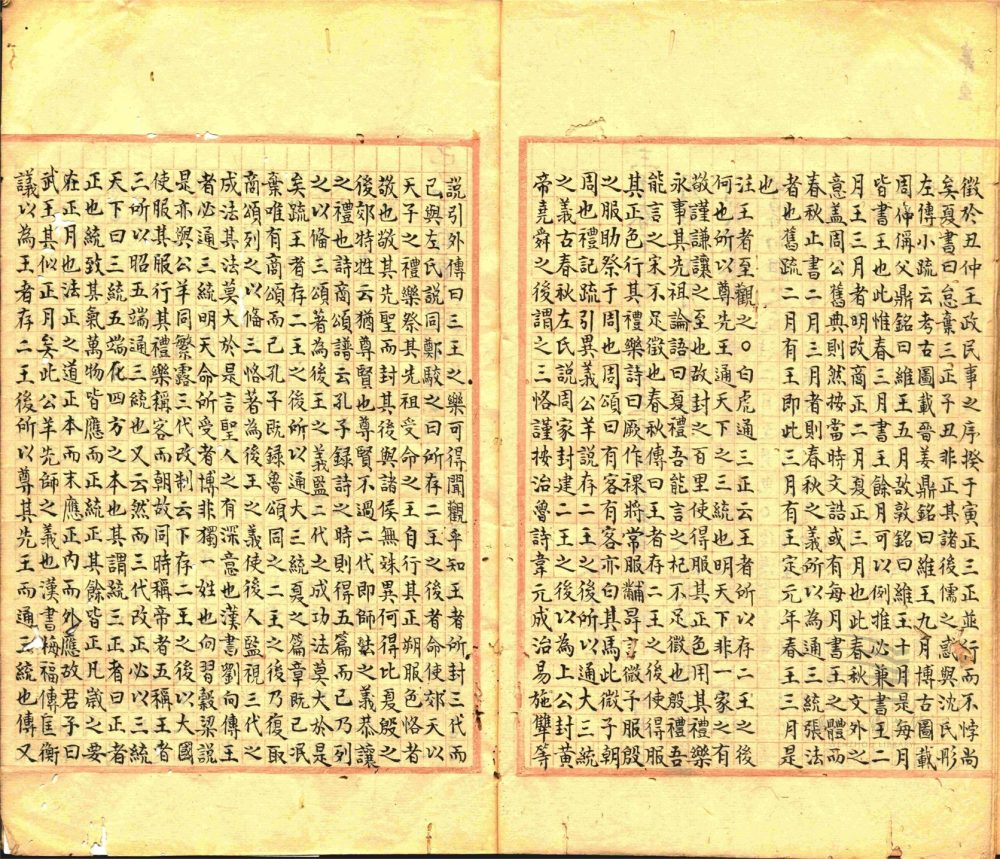 徵於丑仲王政民事之序揆于寅正三正並行而不悖尚
矣夏書曰怠棄三正子丑非正其諸後儒之惑與沈氏彤
左傳小疏云考古圖載晉姜鼎銘曰維王九月博古圖載
周㑖偁父鼎銘曰維王五月敔敦銘曰維王十月是每月
皆書王也此惟春三月書王餘月可以例推必兼書王二
月王三月者明改商正二月夏正三月也此春秋文外之
意盖周公舊典則然按當時文誥或有每月書王之體而
春秋止書二月三月者則春秋之義所以為通三統張法
者也舊疏二月有王即此三月有王定元年春王三月是
也
注王者至觀之○白虎通三正云王者所以存二王之後
何也所以尊先王通天下之三統也明天下非一家之有
敬謹謙讓之至也故封之百里使得服其正色用其禮樂
永事其先祖論語曰夏禮吾能言之杞不足徵也殷禮吾
能言之宋不足徵也春秋傳曰王者存二王之後使得服
其正色行其禮樂詩曰厥作祼將常服黼冔言微子服殷
之服助祭于周也周頌曰有客有客亦白其馬此微子朝
周也禮記疏引異義公羊説存二王之後所以通大三統
之義古春秋左氏説周家封建二王之後以為上公封黃
帝堯舜之後謂之三恪謹按治魯詩韋元成治易施讐等
説引外傳曰三王之樂可得聞觀乎知王者所封三代而
已與左氏説同鄭駮之曰所存二王之後者命使郊天以
天子之禮樂祭其先祖受命之王自行其正朔服色恪者
敬也敬其先聖而封其後與諸侯無殊異何得比夏殷之
後郊特牲云猶尊賢也尊賢不過二代即師法之義恭讓
之禮也詩商頌譜云孔子録詩之時則得五篇而已乃列
之以備三頌著為後王之義監二代之成功法莫大於是
矣疏王者存二王之後所以通大三統夏之篇章既已泯
棄唯有商頌而已孔子既録魯頌同之二王之後乃復取
商頌列之以備三恪著為後王之義使後人監視三代之
成法其法莫大於是言聖人之有深意也漢書劉向傳王
者必通三統明天命所受者博非獨一姓也向習穀梁説
是亦與公羊同繁露三代改制云下存二王之後以大國
使服其服行其禮樂稱客而朝故同時稱帝者五稱王者
三所以昭五端通三統也又云然而三代改正必以三統
天下曰三統五端化四方之本也其謂統三正者曰正者
正也統致其氣萬物皆應而正統正其餘皆正凡歲之要
在正月也法正之道正本而末應正内而外應故君子曰
武王其似正月矣此公羊先師之義也漢書梅福傳匡衡
議以為王者存二王後所以尊其先王而通三統也傳又